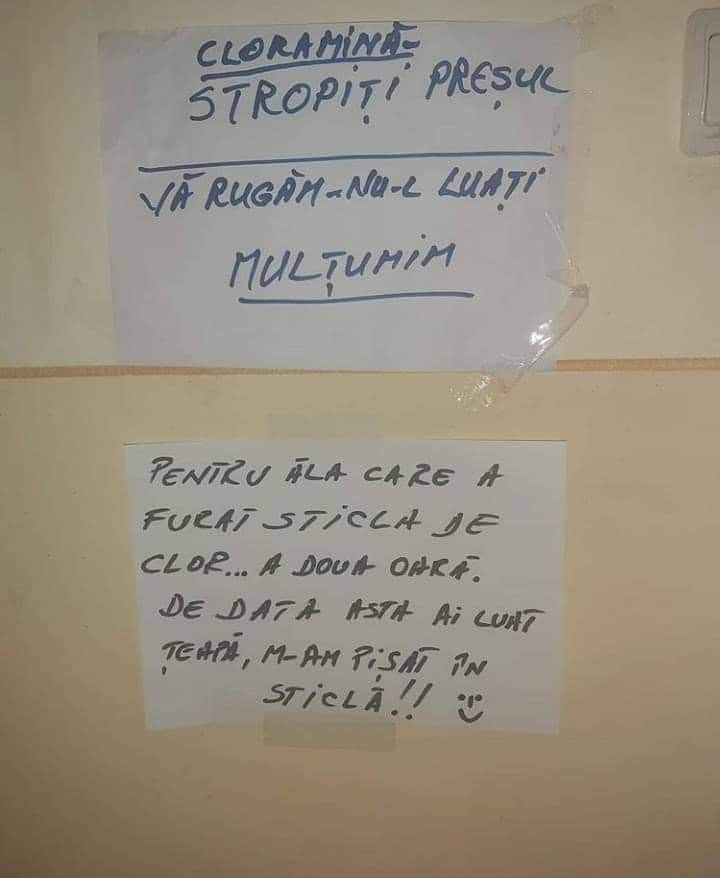 CLORAMINĂ-
STROPIȚI PREȘUL
VĂ RUGĂM-NU-L LUAȚI
MULȚUMIM
PENTRU ĂLA CARE A
FURAT STICLA DE
CLOR... A DOUA OARĂ.
DE DATA ASTA AI LUAT
ȚEAPĂ, M-AM PIȘAT ÎN
STICLĂ!! :)